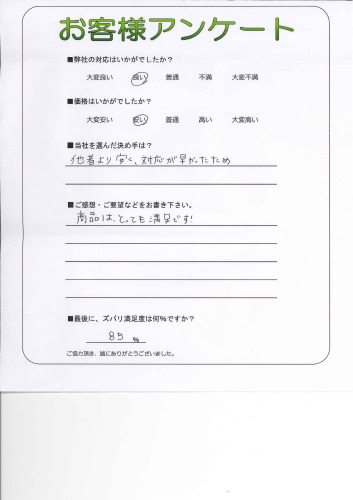 お客様アンケート
■弊社の対応はいかがでしたか？
大変良い 良い 普通 不満 大変不満
■価格はいかがでしたか？
大変安い 安い 普通 高い 大変高い
■当社を選んだ決め手は？
他者より安く、対応が早かったため
■ご感想・ご要望などをお書き下さい。
商品は、とっても満足です!
■最後に、ズバリ満足度は何％ですか？
85 %
ご協力頂き、誠にありがとうございました。